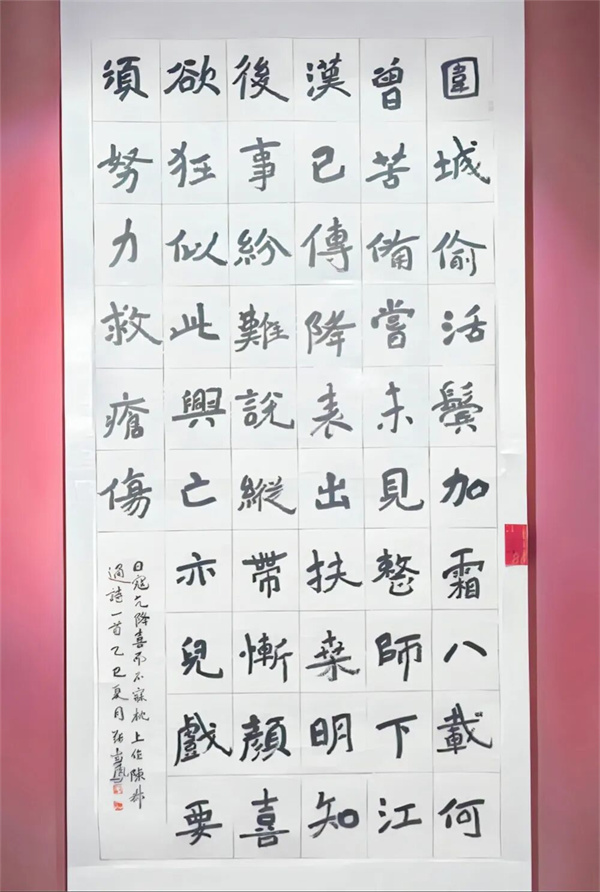 圍城偷活鬢加霜八載何
曾苦備嘗未見整師下江
漢已傳降表出扶桑明知
後事紛難說縱帶慚顏喜
欲狂似此興亡亦兒戲要
須努力救瘡傷
日寇允降喜而不寐枕上作陳叔
通詩一首乙巳夏月